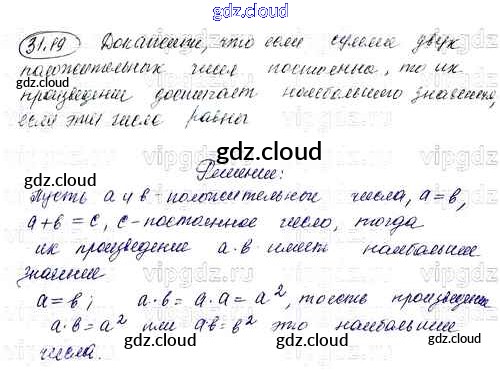 gdz.cloud
31.19 Докажите, что если сумма двух
положительных чисел постоянна, то их
произведение достигает наибольшего значения
если эти числа равны
gdz.cloud
Решение:
Пусть a и b - положительные числа, a = b,
a + b = c, c - постоянное число, тогда
их произведение a · b имеет наибольшее
значение
a = b; a · b = a · a = a², то есть произведение
a · b = a² или a·b = b² это наибольшие
числа.
gdz.cloud